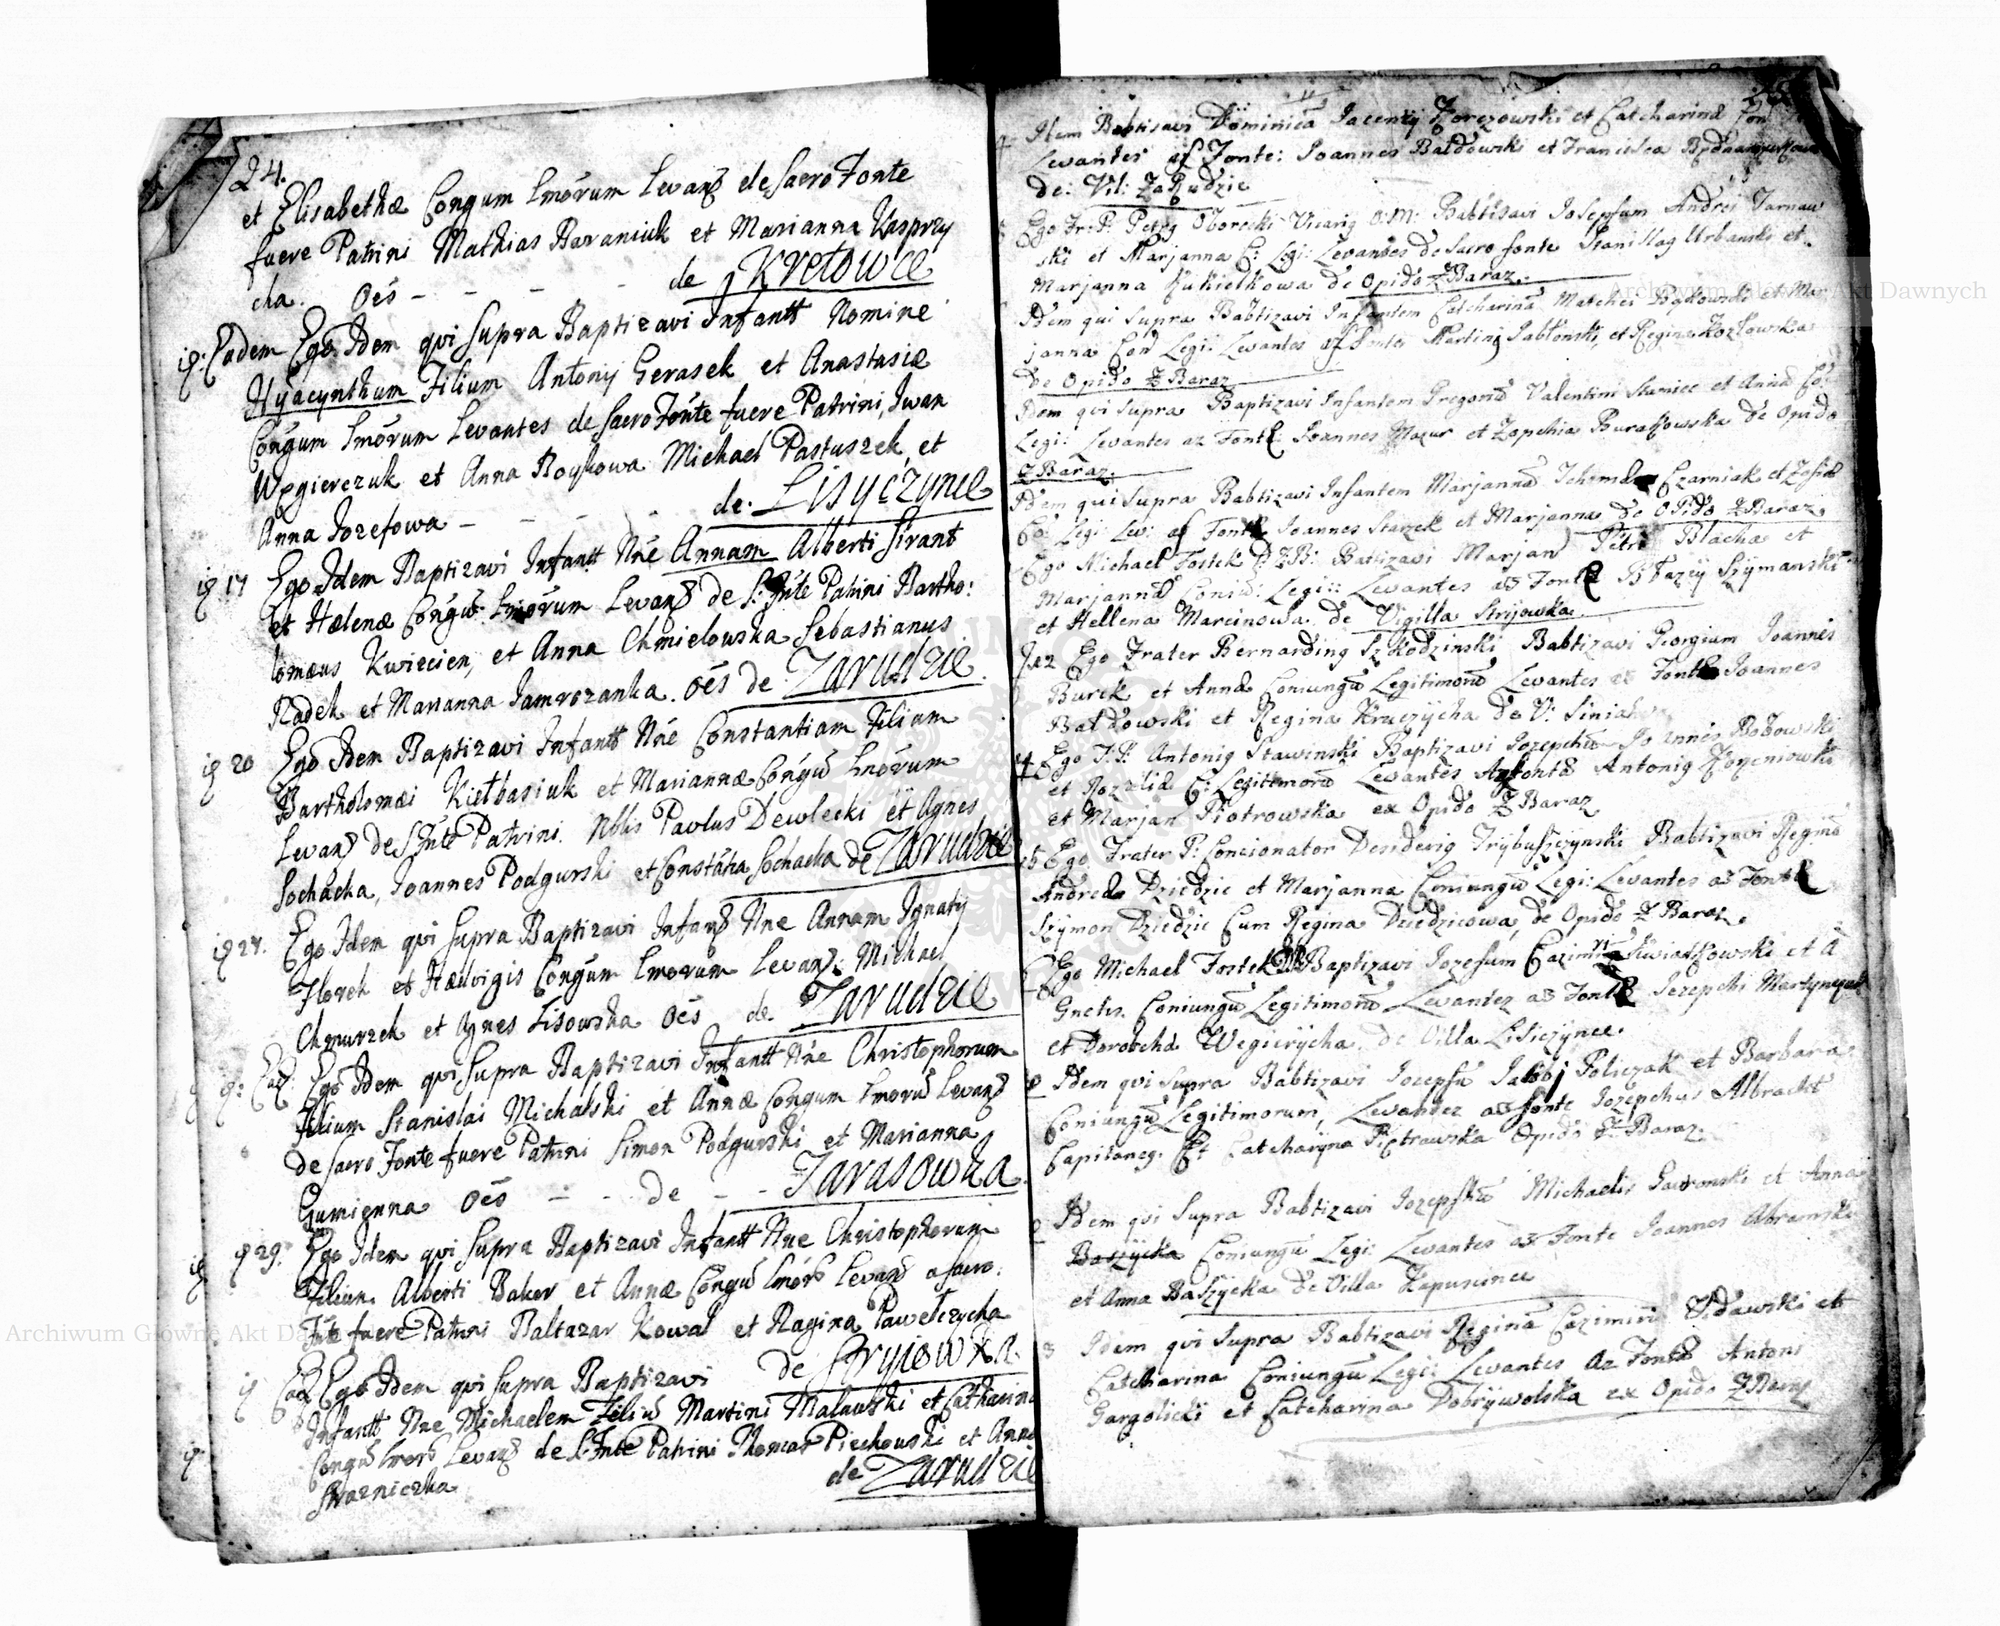 24.
et Elisabethæ Congum Lmorum Levans de Sacro Fonte
fuere Patrini Mathias Baraniuk et Marianna Kasprzy
cha. Oes - - - - de Kretowce
Eadem Ego Idem qui Supra Baptizavi Infantt Nomine
Hyacynthum Filium Antonij Gerasek et Anastasiæ
Congum Lmorum Levantes de Sacro Fonte fuere Patrini, Iwan
Węgierczuk et Anna Roykowa Michael Pastuszek, et
Anna Iozefowa - - - - de. Lisyczynce
17 Ego Idem Baptizavi Infantt Nne Annam Alberti Sirant
et Hælenæ Congu Lmorum Levans de S: Fnte Patrini Bartho:
lomæus Kwiecien, et Anna Chmielowska Sebastianus
Radek et Marianna Jamrozanka. oes de Zarudzie.
20 Ego Idem Baptizavi Infantt Nne Constantiam Filiam
Bartholomæi Kiełbasiuk et Mariannæ Congu Lmorum
Levans de S Fnte Patrini. Nblis Pavlus Dewlecki et Agnes
Sochacka, Joannes Podgurski et Constatia Sochacka de Zarudzie
27. Ego Idem qui Supra Baptizavi Infans Nne Annam Ignatij
Florek et Hædvigis Congum Lmorum Levans: Michael
Chmurzek et Agnes Lisowska Oes de Zarudzie
Ego Idem qui Supra Baptizavi Infantt Nne Christophorum
Filium Stanislai Michalski et Annæ Congum Lmoru Levans
de Sacro Fonte fuere Patrini Simon Podgurski et Marianna
Gumienna Oes - - de - - Tarasowka
29. Ego Idem qui Supra Baptizavi Infantt Nne Christophorum
Filium Alberti Baker et Annæ Congu Lmor Levans a Sacro.
Fnte fuere Patrini Baltazar Kowal et Ragina Pawełczycha
de Stryiowka.
Ego Idem qui Supra Baptizavi
Infantt Nne Michaelem Filiu Martini Malawski et Catharina
Congu Lmor Levans de S. Fnte Patrini Thomas Piechowski et Anna
Strazniczka de Zarudzie
Item Babtisavi Dominica Iacenty Korczowski et Catcharina
Levantes af Fonte: Joannes Bałdowski et Francisca
de: Vil: Zarudzie
Ego Fr: P: Petrg Oborecki Vicarig O: M: Babtisavi Iosepfum Andrei Tarnaw
ski et Marjanna C: Legi: Levantes de Sacro fonte Stanislag Urbanski et
Marjanna Kukiełkowa de Opido Z Baraz.
Idem qui Supra Babtizavi Infantem Catcharina Matchei et Mar
janna Con Legi: Levantes af Fonte Marting Jabłonski, et Regina Kozłowska
de Opido Z Baraz
Idem qui Supra Baptizavi Infantem Gregoriu Valentini Stamiec et Anna Co:
Legi: Levantes az Fonte Ioannes Mazur et Zopchia Burakowska de Opido
Z Baraz.
Idem qui Supra Babtizavi Infantem Marjanna Czarniak et Zofia
Co Legi: Lev: af Fonte Ioannes Starzek et Marjanna de Opido Z Baraz.
Ego Michael Fostek Batizavi Marjan Petri Blacha et
Marjanna Coniu: Legi: Levantes as Fonte Błazij Szymanski
et Hellena Marcinowa de Vigilla Strijowka.
Ego Frater Bernarding Szkodzinski Babtizavi Georgium Ioannis
Burek et Anna Coniungu Legitimoru Levantes as Fonte Ioannes
Bałdowski et Regina Kruczycha de V: Siniah
14 Ego F. P. Antonig Stawinski Baptizavi Iozepchu Ioannes Bobowski
et Rozalia C: Legitimoru Levantes Az Fonte Antonig Korzeniowski
et Marjan Piotrowska ex Opido Z Baraz
15 Ego Frater P: Concionator Desiderig Trybuszczynski Babtizavi Regina
Andreda Dziedzic et Marjanna Coniungu Legi: Levantes as Fonte
Szymon Dziedzic Cum Regina Dziedzicowa, de Opido Z Baraz.
Ego Michael Fostek Baptizavi Iozefum Cazimiri Kwiatkowski et A
Gnetis. Coniungu Legitimoru Levantez as Fonte Iezepchi Martyniyuk
et Dorotcha Wegierycha. de Villa Lisiczynce.
Idem qui Supra Babtizavi Iozepfu Iakobi Policzak et Barbara
Coniungu Legitimorum, Levantez as fonte Iozepchus Albracht
Capitaneg. Et Catcharyna Piotrawska Opido Z Baraz.
Idem qui Supra Babtizavi Iozepfhu Michaelis Gawonski et Anna
Baszycka Coniungu Legi: Levantes as Fonte Ioannes Abramski
et Anna Baszycka de Villa Kapuscince
Idem qui Supra Babtizavi Regina Cazimiri Zdawski et
Catcharina Coniungu Legi: Levantes Az Fonte Antoni
Gargolicki et Catcharina Dobrywolska ex Opido Z Baraz
Archiwum Główne Akt Dawnych
Archiwum Główne Akt Dawnych